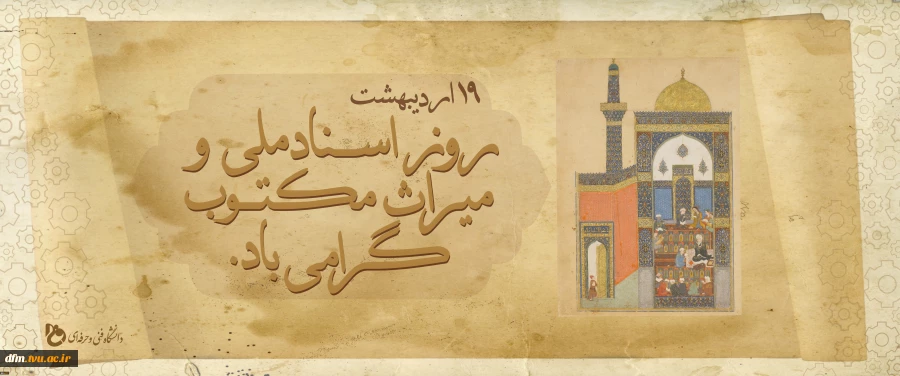 ۱۹ اردیبهشت
روز اسناد ملی و
میراث مکتوب
گرامی باد.
دانشگاه فنی و حرفه‌ای
dfm.tvu.ac.ir